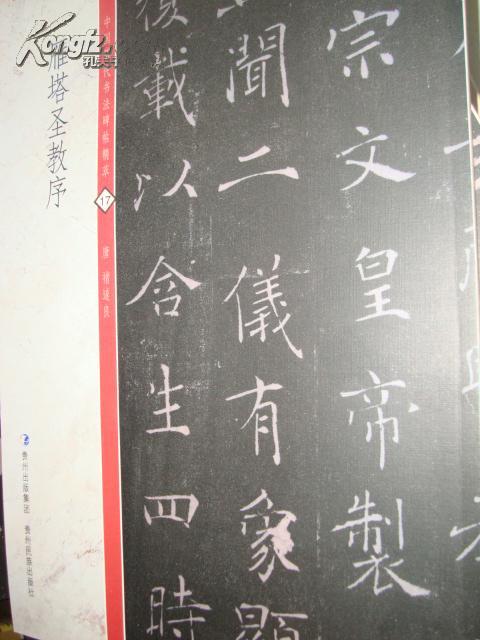 Kongfz.com
孔夫子
雁塔圣教序
中国历代书法碑帖精萃
17
唐 褚遂良
贵州出版集团 贵州民族出版社
宗文皇帝製
聞二儀有象顯
覆載以含生四時